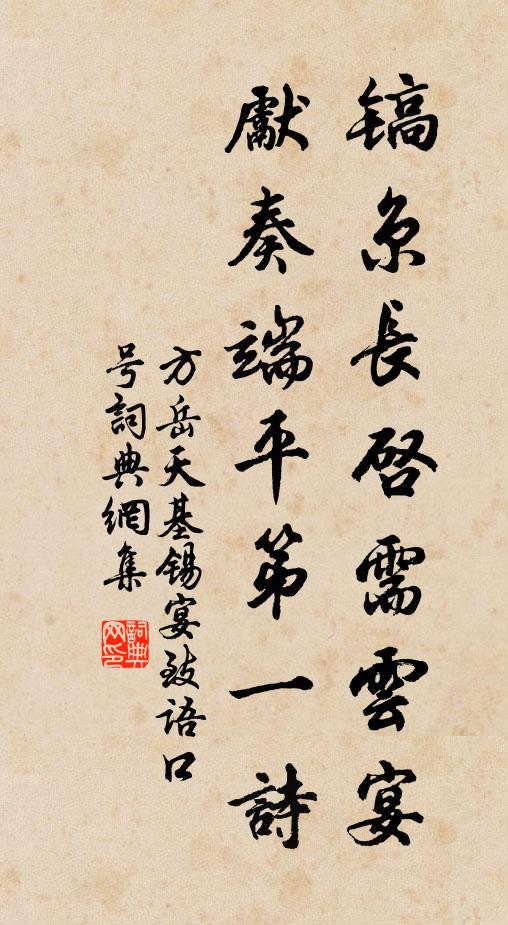 镐京長啓需雲宴
獻奏端平第一詩
方岳天基錫宴致语口
号詞典網集
詞典
网印